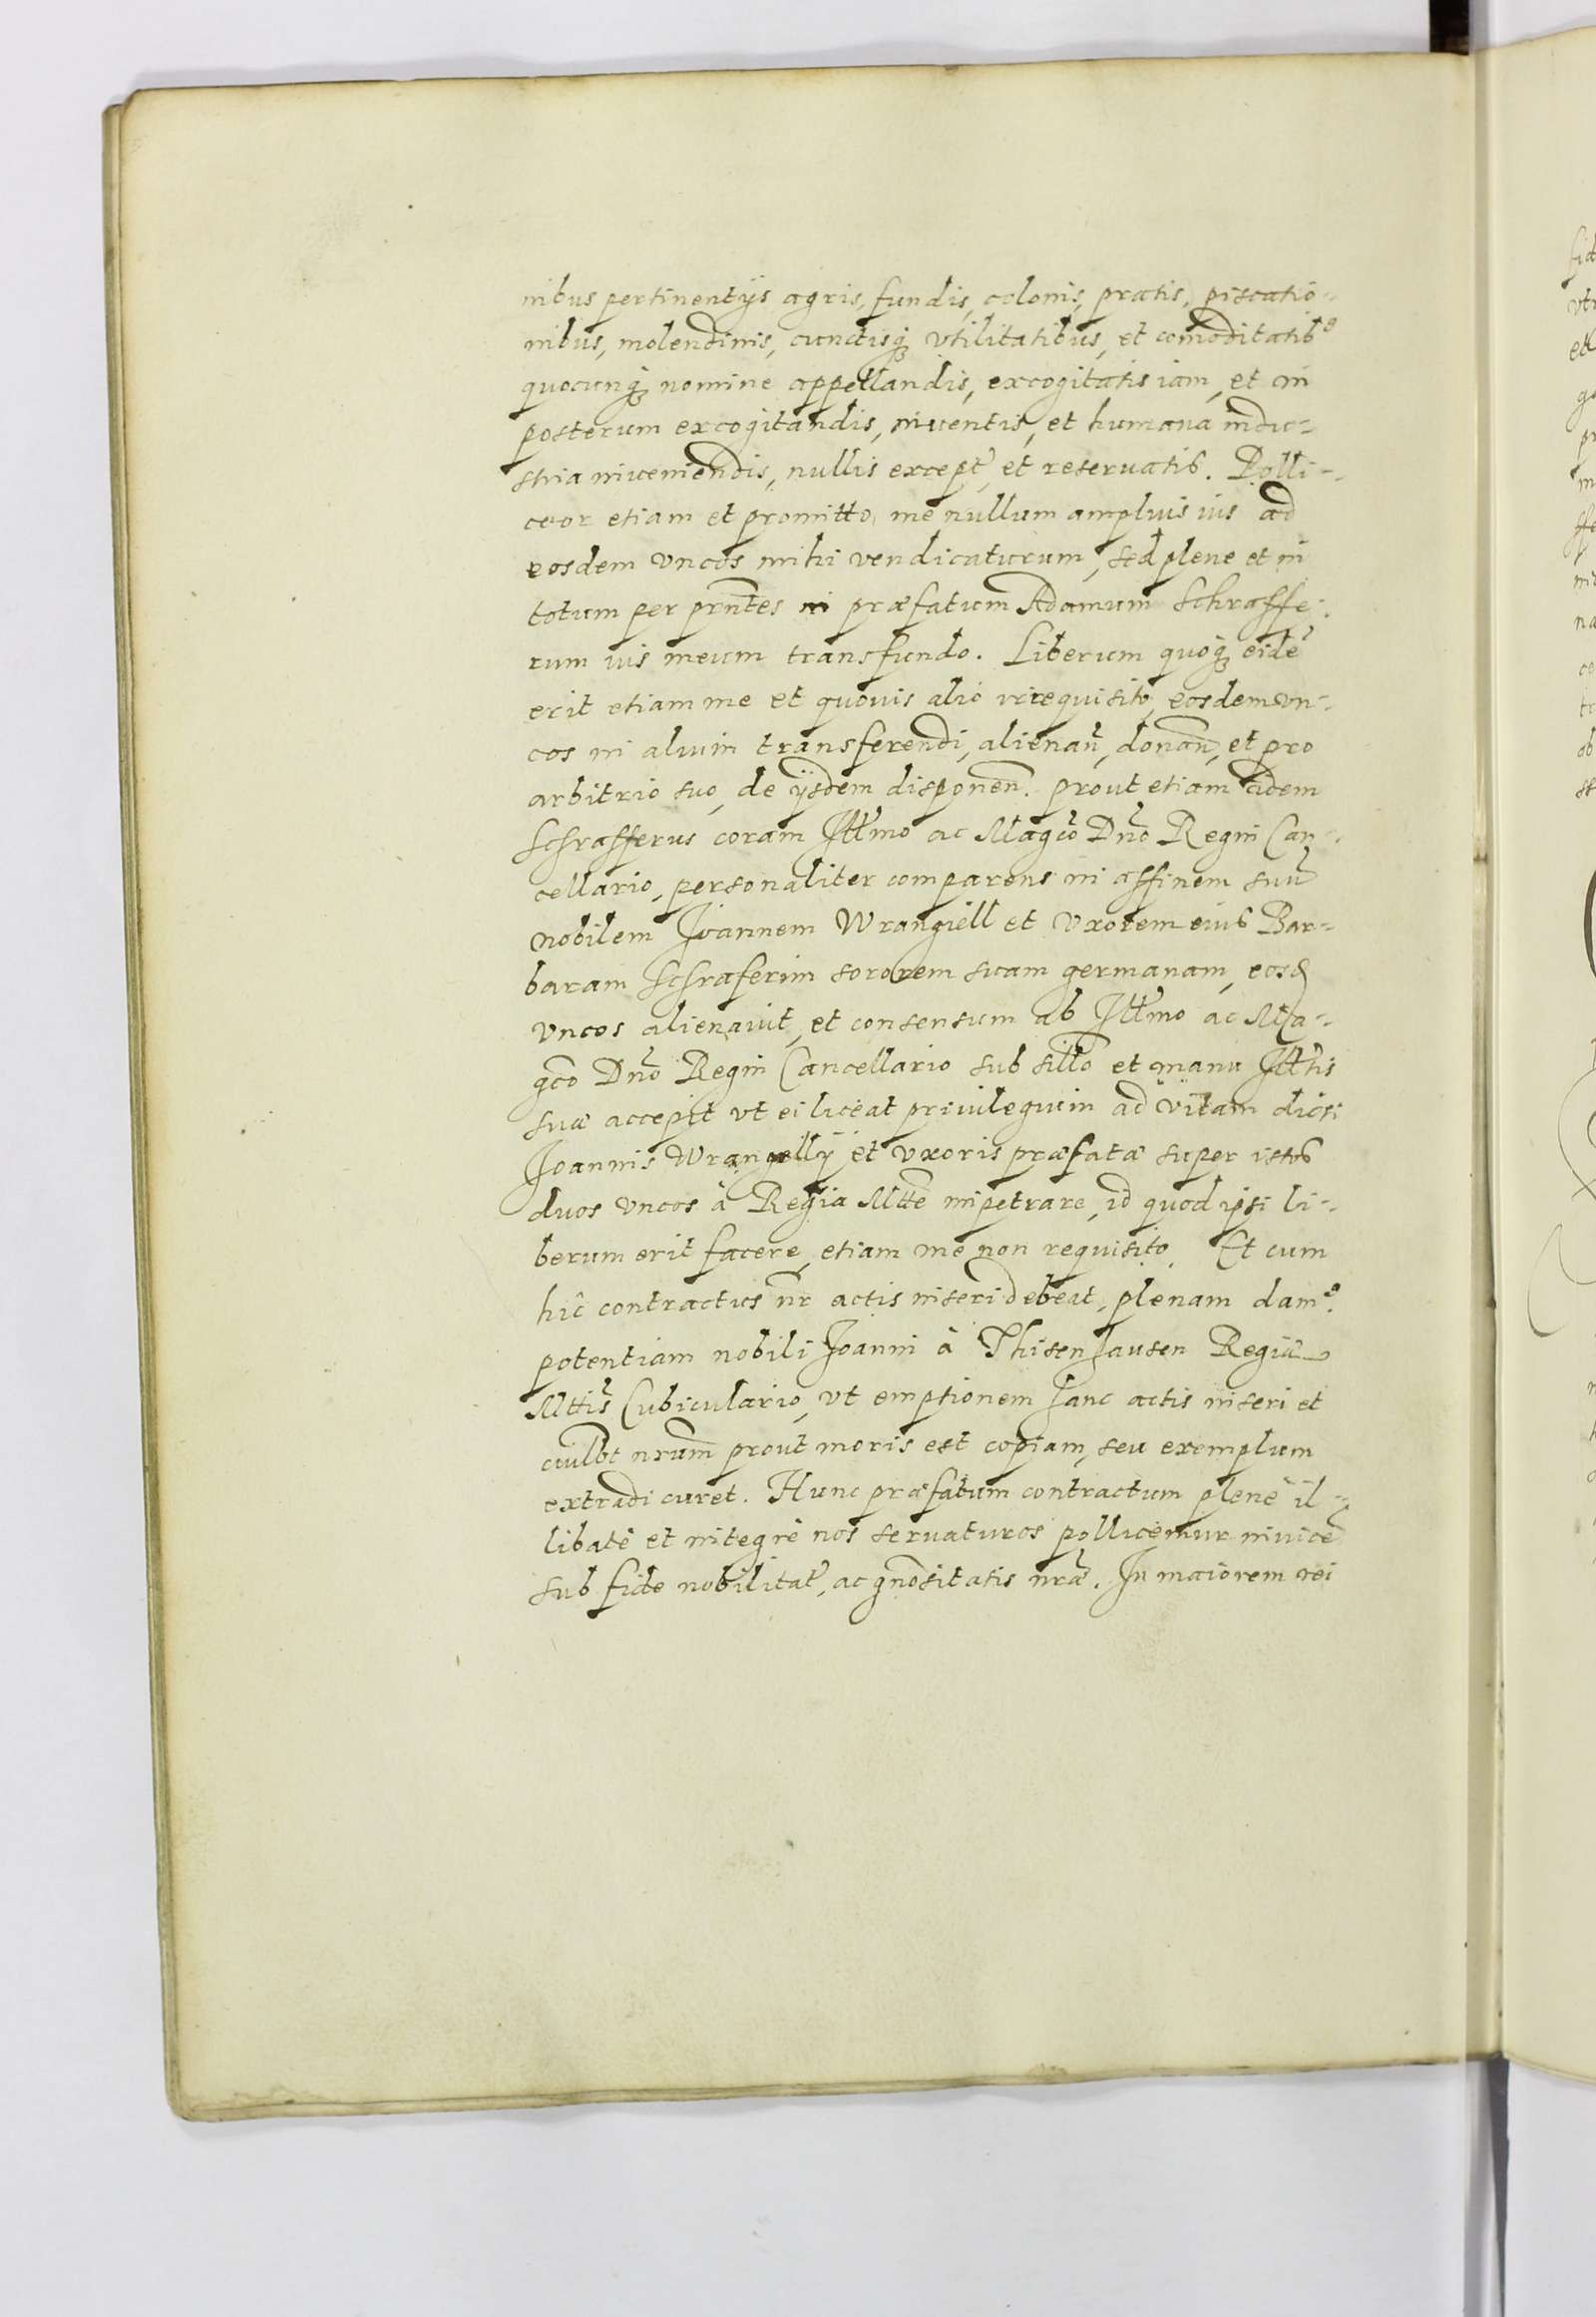 nibus pertinentijs agris, fundis, colonis, pratis, piscatio-
nibus, molendinis, cunctisq; vtilitatibus, et comoditatib9
quocunq; nomine appellandis, excogitatis iam, et in
posterum excogitandis, inuentis, et humana indu-
stria inueniendis, nullis except, et reseruatis. Polli-
ceor etiam et promitto, me nullum amplius ius ad
eosdem vncos mihi vendicaturum, sed plene et in
totum per pñtes in præfatum Adamum Schraffe-
rum ius meum transfundo. Liberum quoq; eidẽ
erit etiam me et quouis alio irrequisito, eosdem vn-
cos in alium transferendi, alienañ, donañ, et pro
arbitrio suo, de ijsdem disponeñ. prout etiam idem
Schrafferus coram Illmo ac Magco Dño Regni Can-
cellario, personaliter comparens in affinem suũ
nobilem Joannem Wrangiell et Vxorem eius Bar-
baram Schraferin sororem suam germanam, eosd
vncos alienauit, et consensum ab Illmo ac Ma-
gco Dño Regni Cancellario sub sillo et manu Illtis
suæ accepit vt ei liceat priuilegium ad vitam dicti
Joannis Wrangellij et vxoris præfatæ super istos
duos vncos à Regia Mtte impetrare, id quod ipsi li-
berum erit facere, etiam me non requisito. Et cum
hic contractus nr actis inseri debeat, plenam dam9.
potentiam nobili Joanni à Thisenhausen Regiæ
Mttis Cubiculario, vt emptionem hanc actis inseri et
cuilbt nrum prout moris est copiam, seu exemplum
extradi curet. Hunc præfatum contractum plenè il-
libatè et integrè nos seruaturos pollicemur inuicẽ
sub fide nobilitat, ac gnositatis nræ. In maiorem rei